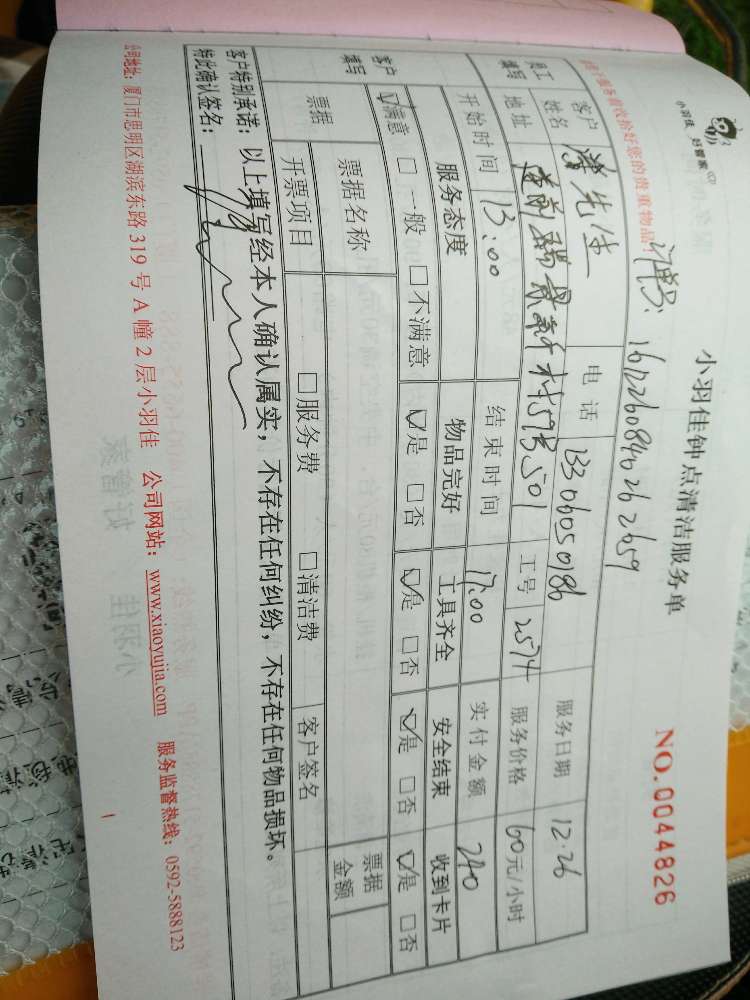 小羽佳 好管家
小羽佳钟点清洁服务单
NO.0044826
订单号: 1612260840262659
客户姓名 先生 电话 13306050186 服务日期 12.26
员工填写 地址 501 工号 2574 服务价格 60元/小时
开始时间 13:00 结束时间 17:00 实付金额 240
客户填写 服务态度 物品完好 工具齐全 安全结束 收到卡片
☑满意 □一般 □不满意 ☑是 □否 ☑是 □否 ☑是 □否 ☑是 □否
票据 票据名称 票据金额
开票项目 □服务费 □清洁费 客户签名
客户特别承诺: 以上填写经本人确认属实，不存在任何纠纷，不存在任何物品损坏。
特此确认签名:
公司地址: 厦门市思明区湖滨东路319号A幢2层小羽佳 公司网站: www.xiaoyujia.com 服务监督热线: 0592-5888123
1